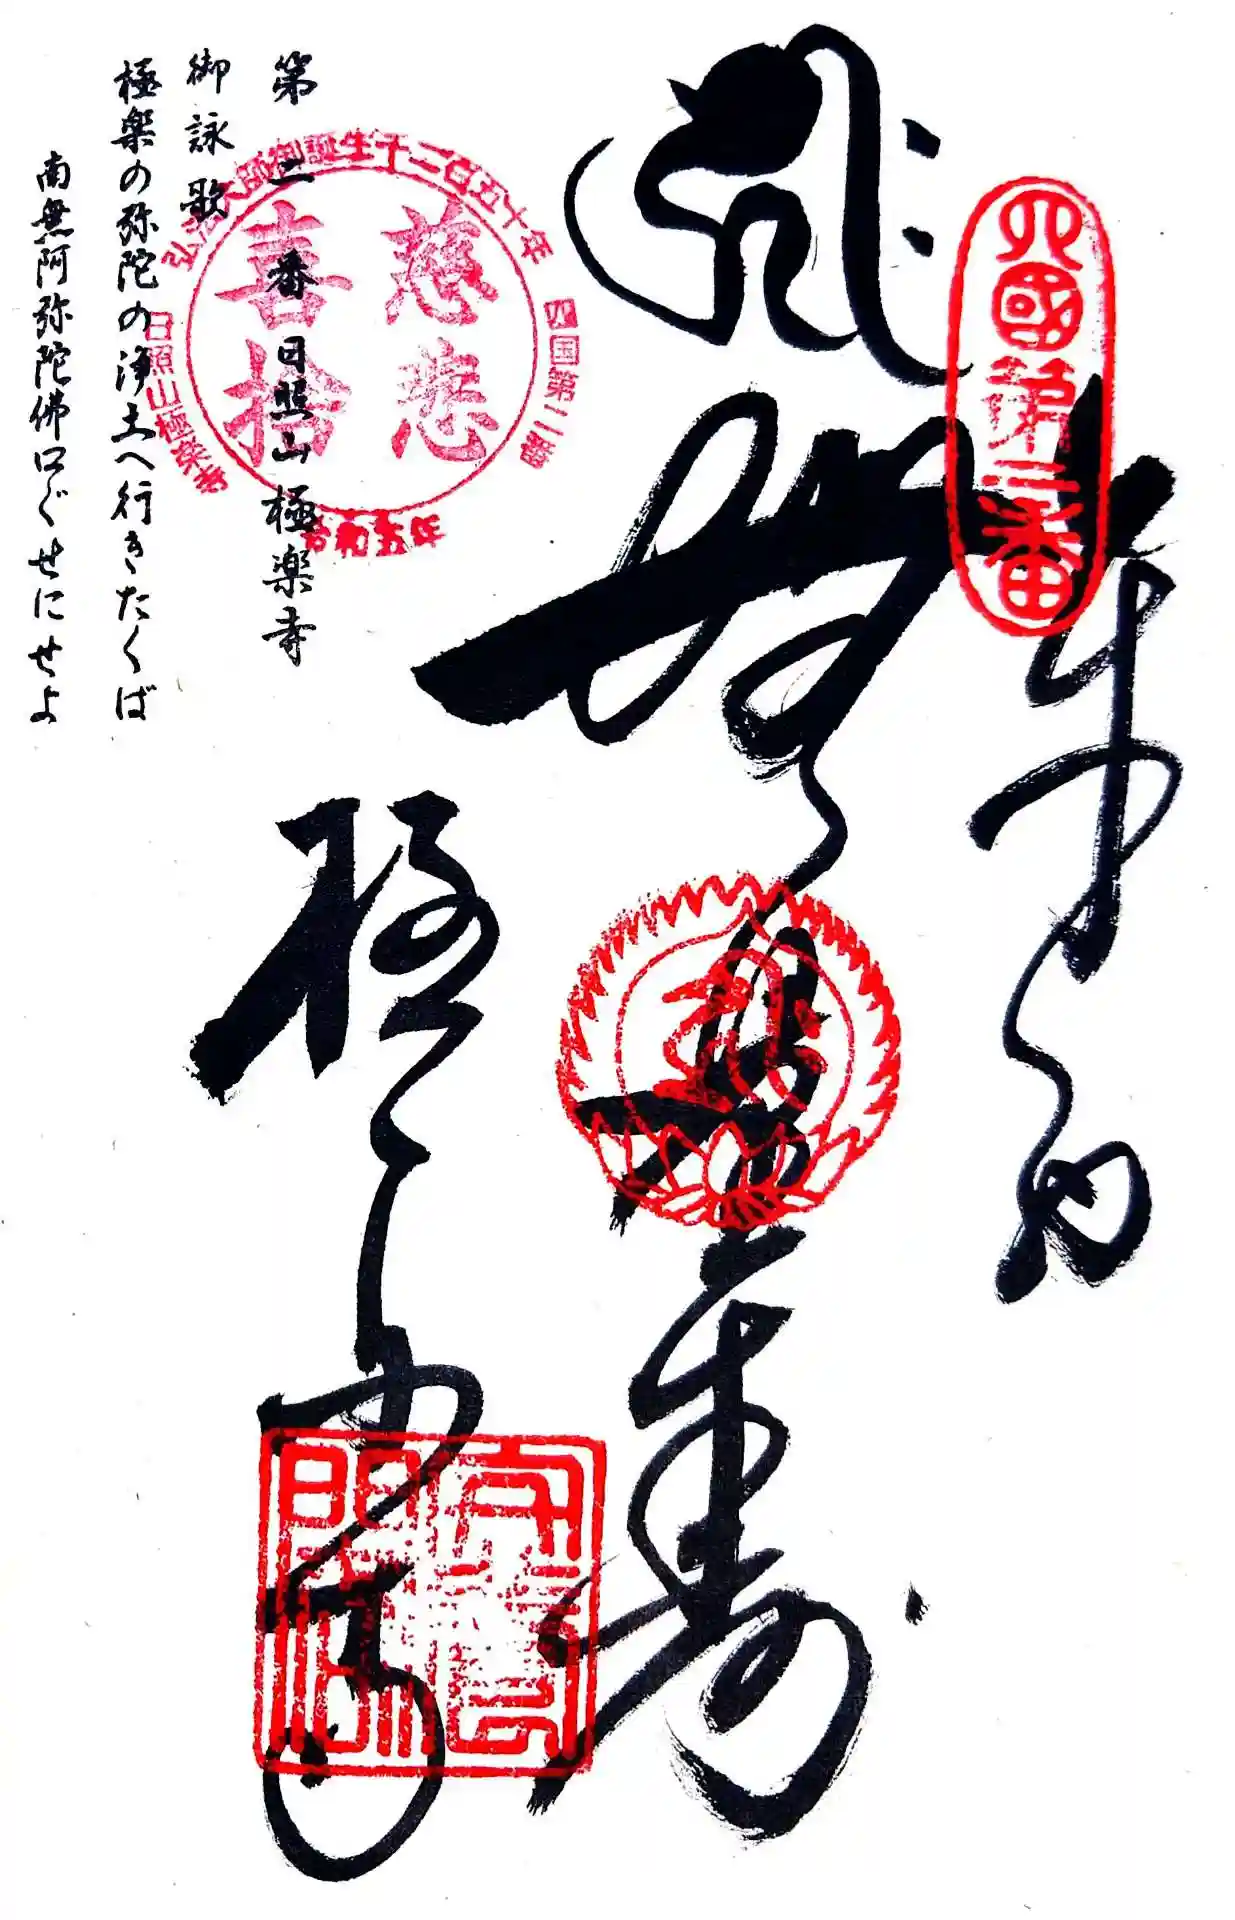 奉納
四國第二番
無量寿
極楽寺
弘法大師御誕生千二百五十年
四国第二番
慈悲
喜捨
日照山極楽寺
令和五年
第二番日照山極楽寺
御詠歌
極楽の弥陀の浄土へ行きたくば
南無阿弥陀佛口ぐせにせよ